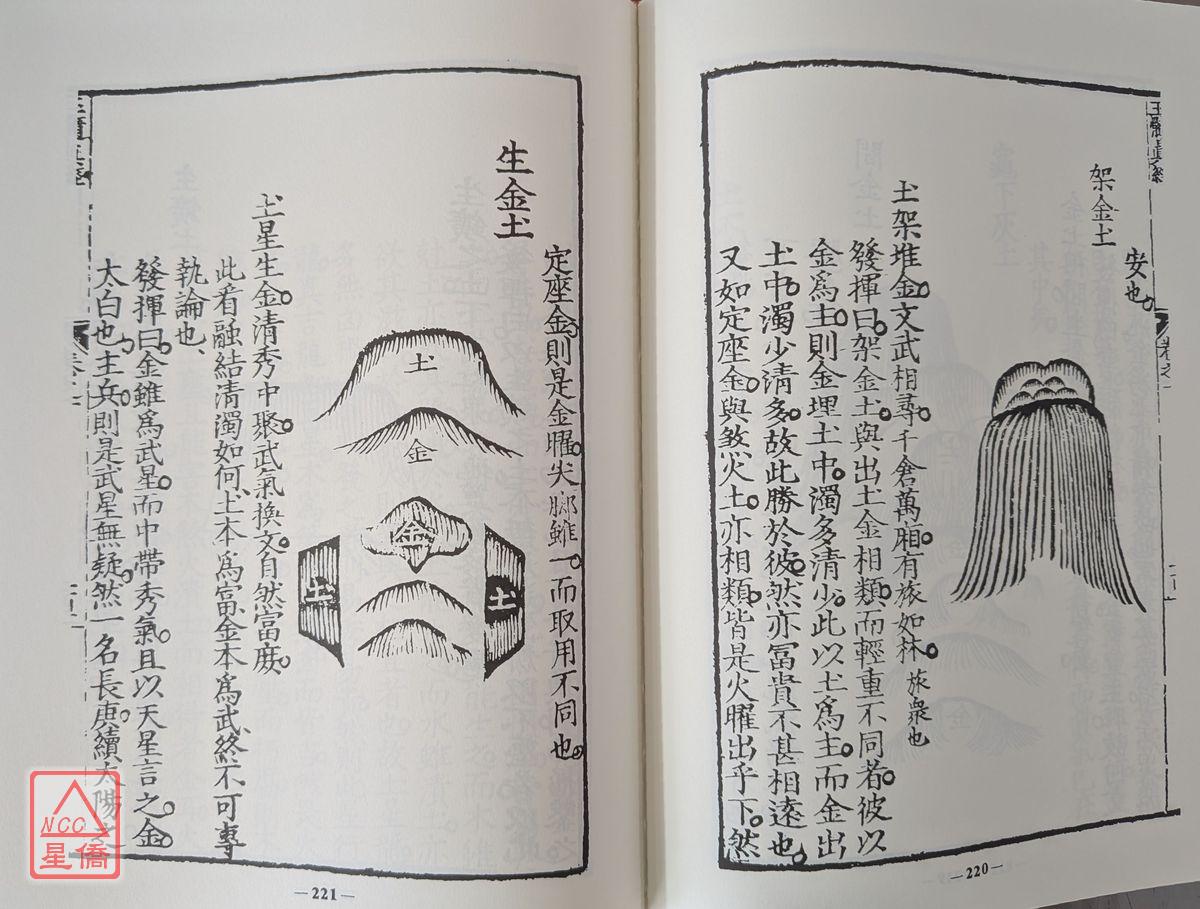 安也。
架金土
土架堆金。文武相尋。千倉萬廂。有旅如林。旅衆也
發揮曰。架金土。與出土金相類。而輕重不同者。彼以
金爲主。則金埋土中。濁多清少。此以土爲主。而金出
土中。濁少清多。故此勝於彼。然亦富貴不甚相遠也。
又如定座金。與煞火土。亦相類。皆是火曜出乎下。然
—220—
定座金。則是金曜。尖腳雖一。而取用不同也。
生金土
土
金
金
土
土
土星生金。清秀中聚。武氣換文。自然富庶。
此看融結清濁如何。土本爲富。金本爲武。終不可專
執論也、
發揮曰。金雖爲武星。而中帶秀氣。且以天星言之。金
太白也。主兵。則是武星無疑。然一名長庚。續太陽之
—221—
NCC
星僑